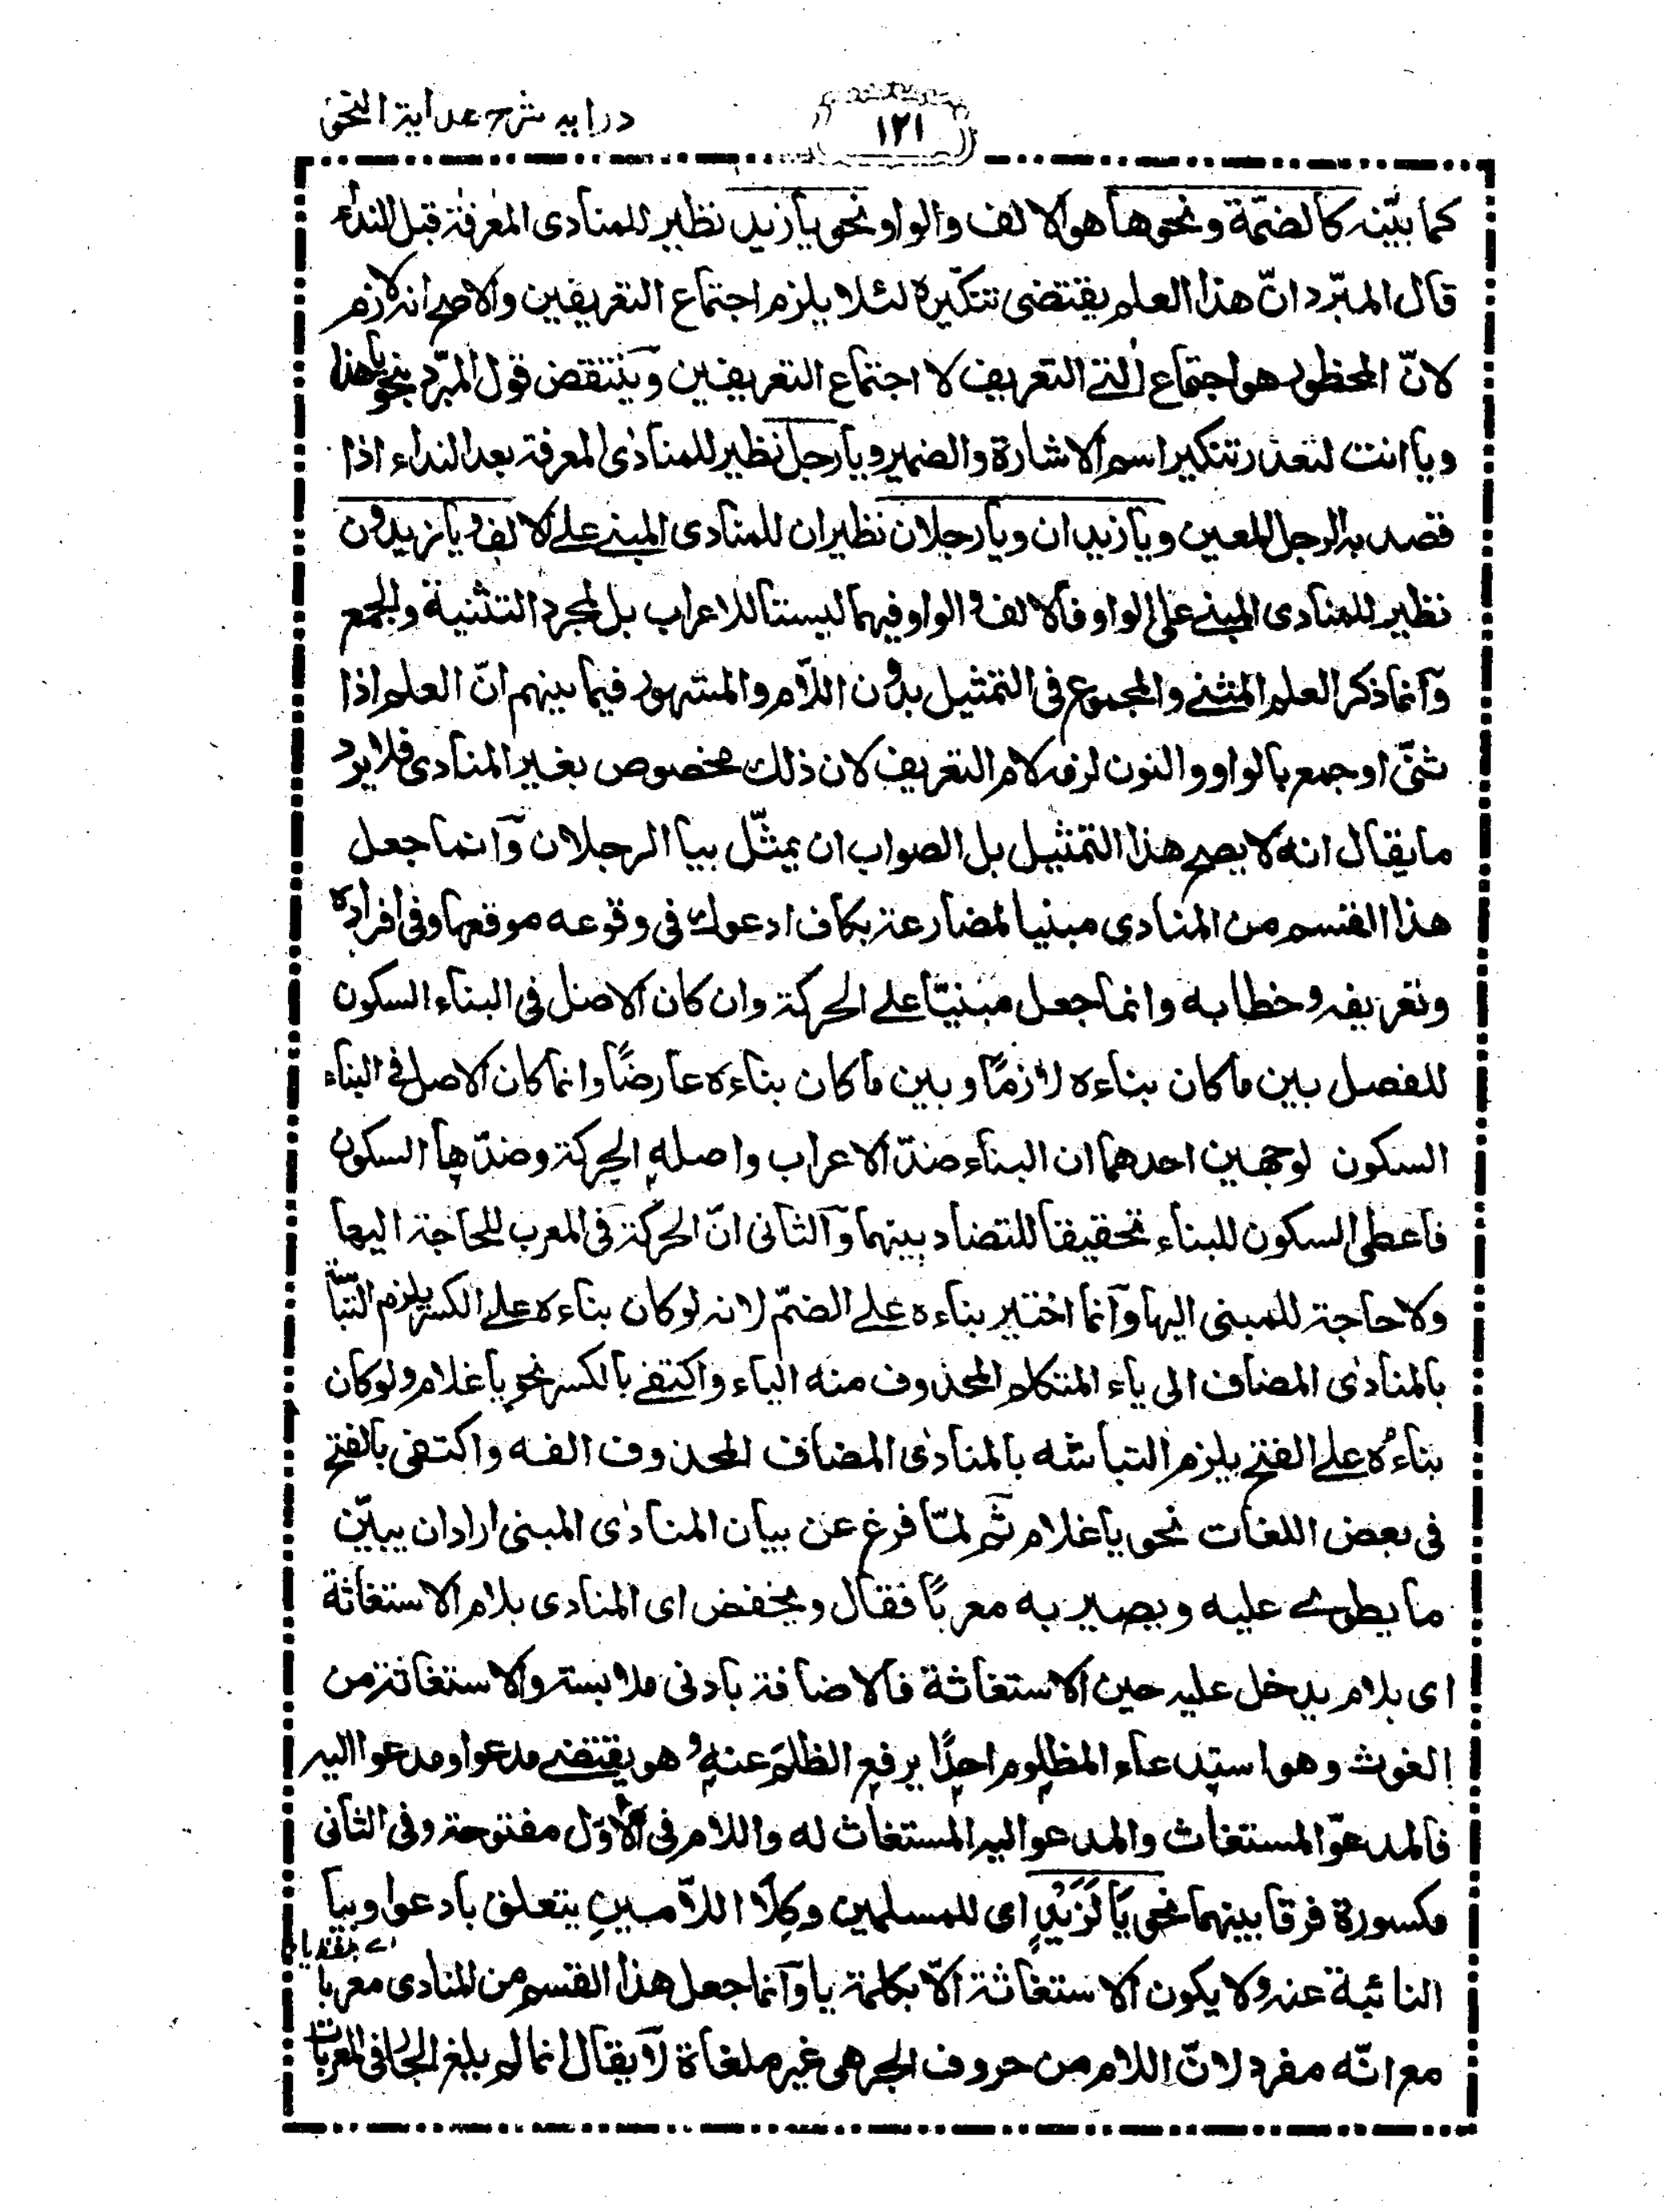 درایه شرح هدایة النحو
۱۲۱
كما بيّنه كالضمّة ونحوها هو الالف والواو نحو يا زيد نظير للمنادى المعرفة قبل النداء
قال المبرّد انّ هذا العلم يقتضى تنكيره لئلا يلزم اجتماع التعريفين والاصح انه لازم
لانّ المحظور هو اجتماع اٰلتى التعريف لا اجتماع التعريفين وينتقض قول المبرّد بنحو يا هذا
ويا انت لتعذر تنكير اسم الاشارة والضمير ويا رجل نظير للمنادٰى المعرفة بعد النداء اذا
قصد به الرجل المعين ويا زيدان ويا رجلان نظيران للمنادى المبنے علے الالف ويا زيدون
نظير للمنادى المبنے على الواو فالالف والواو فيهما ليستا للاعراب بل لمجرد التثنية والجمع
وآنما ذكر العلم المثنے والمجموع فى التمثيل بدون اللام والمشهور فيما بينهم انّ العلم اذا
ثنّى او جمع بالواو والنون لزمه لام التعريف لان ذلك مخصوص بغير المنادى فلا يرد
ما يقال انه لا يصح هذا التمثيل بل الصواب ان يمثّل بيا الرجلان وآنما جعل
هذا القسم من المنادى مبنيا لمضارعته بكاف ادعوك فى وقوعه موقعها وفى افراده
وتعريفه وخطابه وانما جعل مبنيّا علے الحركة وان كان الاصل فى البناء السكون
للفصل بين ما كان بناءه لازمًا وبين ما كان بناءه عارضًا وانما كان الاصل فے البناء
السكون لوجهين احدهما ان البناء ضدّ الاعراب واصله الحركة وضدّها السكون
فاعطى السكون للبناء تحقيقا للتضاد بينهما وآلثانى انّ الحركة فى المعرب للحاجة اليها
ولا حاجة للمبنى اليها وآنما اختير بناءه علے الضمّ لانه لو كان بناءه علے الكسر يلزم التباسه
بالمنادٰى المضاف الى ياء المتكلم المحذوف منه الياء واكتفے بالكسر نحو يا غلام ولو كان
بناءُه علے الفتح يلزم التباسه بالمنادٰى المضاف المحذوف الفه واكتفى بالفتح
فى بعض اللغات نحو يا غلام ثم لمّا فرغ عن بيان المنادٰى المبنى اراد ان يبيّن
ما يطرے عليه ويصير به معربًا فقال ويخفض اى المنادى بلام الاستغاثة
اى بلام يدخل عليه حين الاستغاثة فالاضافة بادنى ملابسة والاستغاثة من
الغوث وهو استدعاء المظلوم احدًا يرفع الظلم عنه وهو يقتضے مدعوا ومدعوا اليه
فالمدعوّ المستغاث والمدعو اليه المستغاث له واللام فى الاوّل مفتوحة وفى الثانى
مكسورة فرقا بينهما نحو يَا لَزَيْدٍ اى للمسلمين وكِلَا اللاّمينِ يتعلق بادعوا وبيا
النائبة عنه ولا يكون الاستغاثة الّا بكلمة يا وآنما جعل هذا القسم من المنادى معربا
مع انّه مفرد لانّ اللام من حروف الجر هى غير ملغاة لآ يقال انما لم يلغ الجار فى المعربات